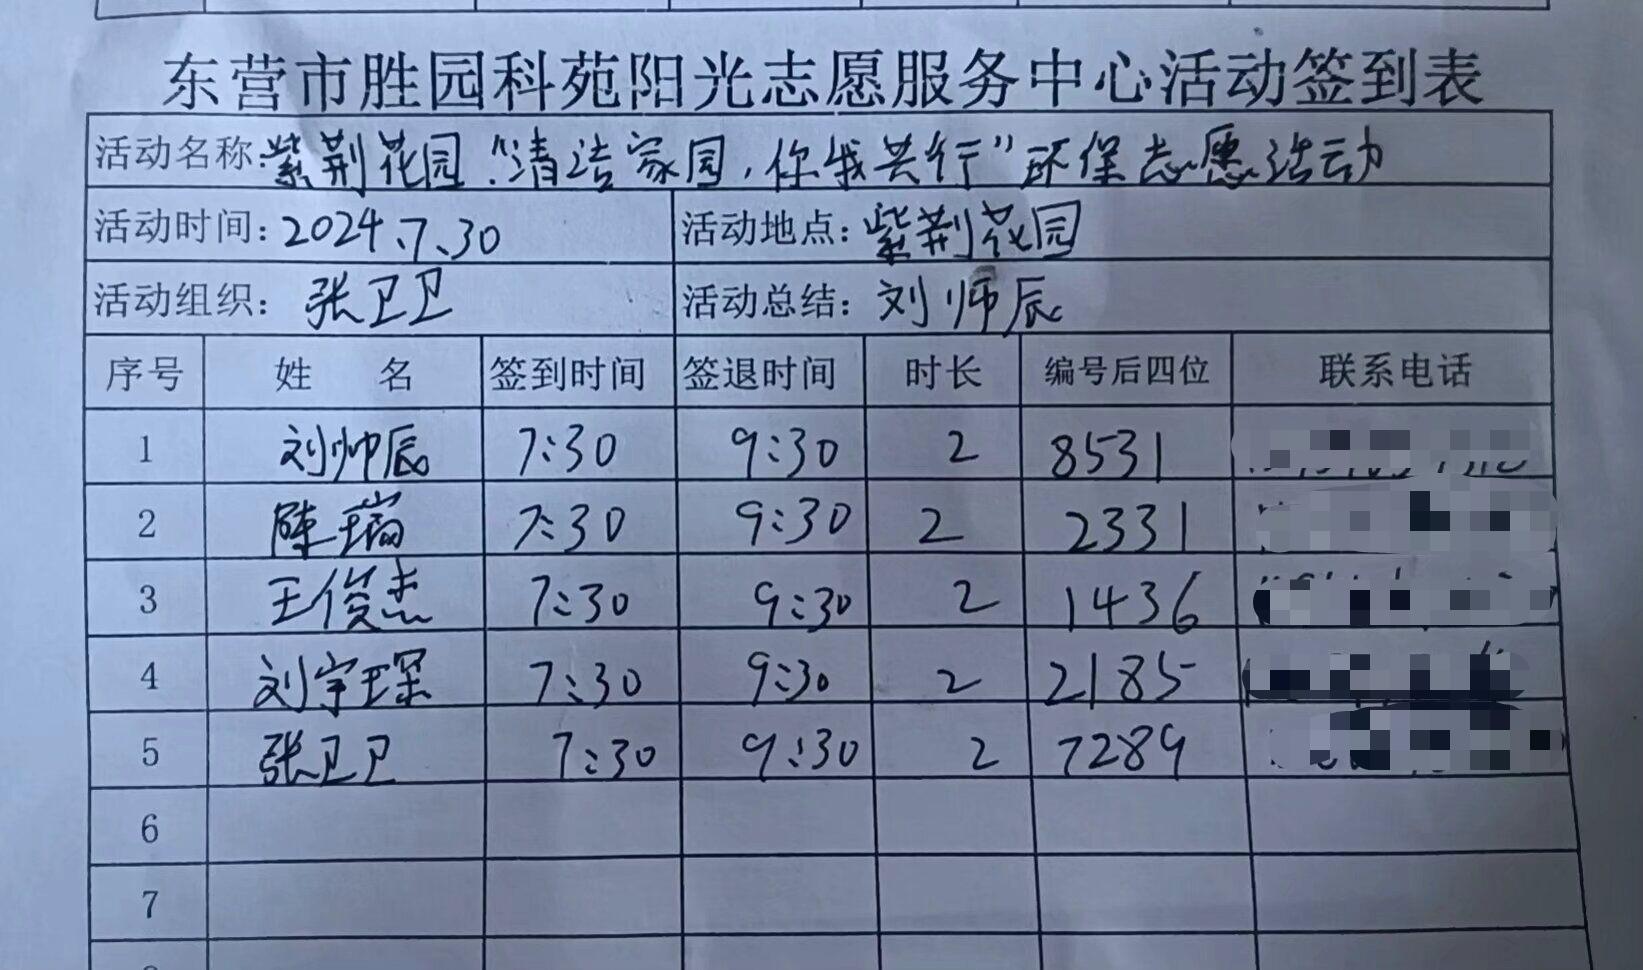 东营市胜园科苑阳光志愿服务中心活动签到表
活动名称:紫荆花园“清洁家园,你我共行”环保志愿活动
活动时间:2024.7.30 活动地点:紫荆花园
活动组织: 张卫卫 活动总结: 刘帅辰
序号 姓 名 签到时间 签退时间 时长 编号后四位 联系电话
1 刘帅辰 7:30 9:30 2 8531
2 陈瑞 7:30 9:30 2 2331
3 王俊杰 7:30 9:30 2 1436
4 刘宇琛 7:30 9:30 2 2185
5 张卫卫 7:30 9:30 2 7289
6
7